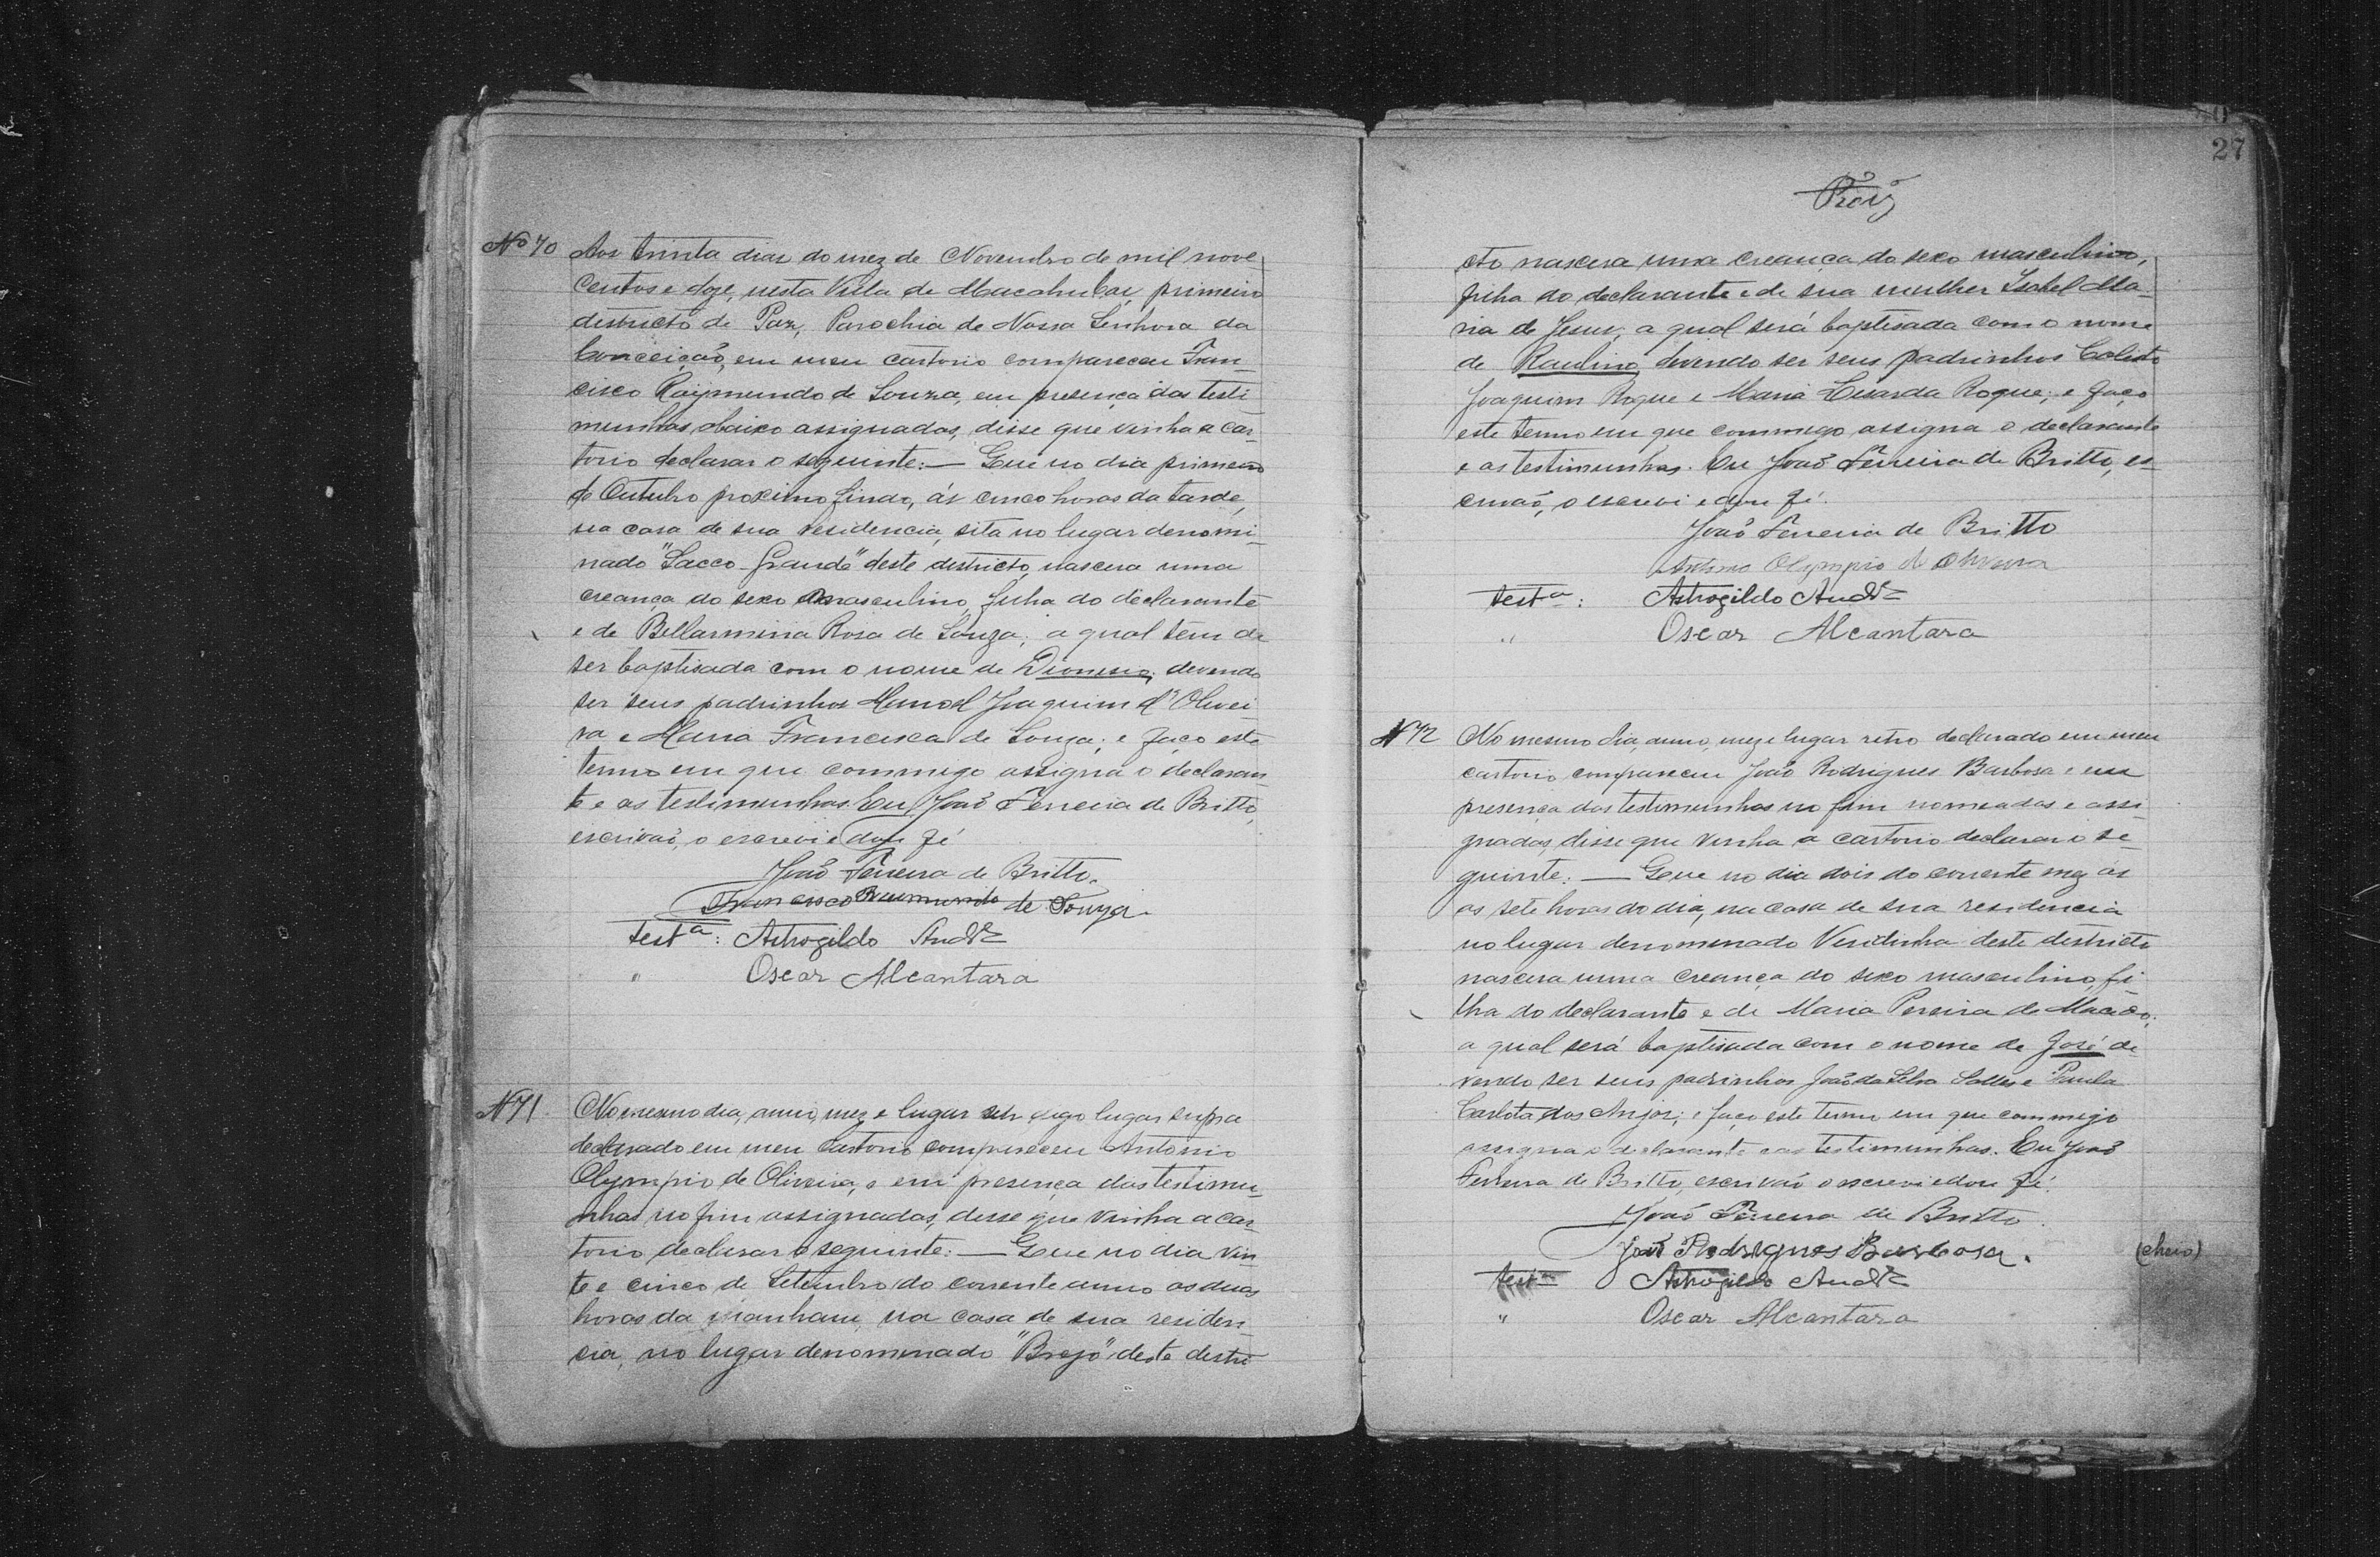 Nº 70 Aos trinta dias do mez de Novembro de mil nove-
centos e doze, nesta Villa de Macahubas, primeiro
districto de Paz, Parochia de Nossa Senhora da
Conceição, em meu cartorio compareceu Fran-
cisco Raymundo de Souza, em presença das testi-
munhas abaixo assignadas, disse que vinha a car-
torio declarar o seguinte: — Que no dia primeiro
de Outubro proximo findo, ás cinco horas da tarde,
na casa de sua residencia, sita no lugar denomi-
nado "Sacco-Grande" deste districto, nascera uma
creança do sexo masculino, filha do declarante
e de Bellarmina Rosa de Souza; a qual tem de
ser baptisada com o nome de Dionisio, devendo
ser seus padrinhos Manoel Joaquim d'Olivei-
ra e Maria Francisca de Souza; e faço este
termo em que commigo assigna o declaran-
te e as testimunhas. Eu, João Ferreira de Britto,
escrivão, o escrevi e dou fé
João Ferreira de Britto.
Francisco Raumundo de Souza.
Testª: Astrogildo And
" Oscar Alcantara
N 71 No mesmo dia, anno, mez e lugar digo lugar supra
declarado em meu cartorio compareceu Antonio
Olympio de Oliveira, e em presença das testimu-
nhas no fim assignadas, disse que vinha a car-
torio declarar o seguinte: — Que no dia vin-
te e cinco de Setembro do corrente anno as duas
horas da manham, na casa de sua residen-
cia, no lugar denominado "Brejo" deste distri-
27
cto nascera uma creança do sexo masculino,
filha do declarante e de sua mulher Isabel Ma-
ria de Jesus; a qual será baptisada com o nome
de Raulino, devendo ser seus padrinhos
Joaquim Roque e Maria Roque; e faço
este termo em que commigo assigna o declarante
e as testimunhas. Eu João Ferreira de Britto, es-
crivão, o escrevi e dou fé.
João Ferreira de Britto
Antonio Olympio de Oliveira
Testª: Astrogildo And
" Oscar Alcantara
N 72 No mesmo dia, anno, mez e lugar retro declarado em meu
cartorio compareceu João Rodrigues Barbosa e em
presença das testimunhas no fim nomeadas e assi-
gnadas, disse que vinha a cartorio declarar o se-
guinte: — Que no dia dois do corrente mez ás
as sete horas do dia, na casa de sua residencia
no lugar denominado deste districto
nascera uma creança do sexo masculino, fi-
lha do declarante e de Maria Pereira de Macedo;
a qual será baptisada com o nome de José de-
vendo ser seus padrinhos João da Silva Salles e Paula
Carlota dos Anjos; e faço este termo em que commigo
assigna o declarante e as testimunhas. Eu João
Ferreira de Britto, escrivão o escrevi e dou fé.
João Ferreira de Britto
João Rodrigues Barbosa.
(cheio)
Testª Astrogildo And
" Oscar Alcantara